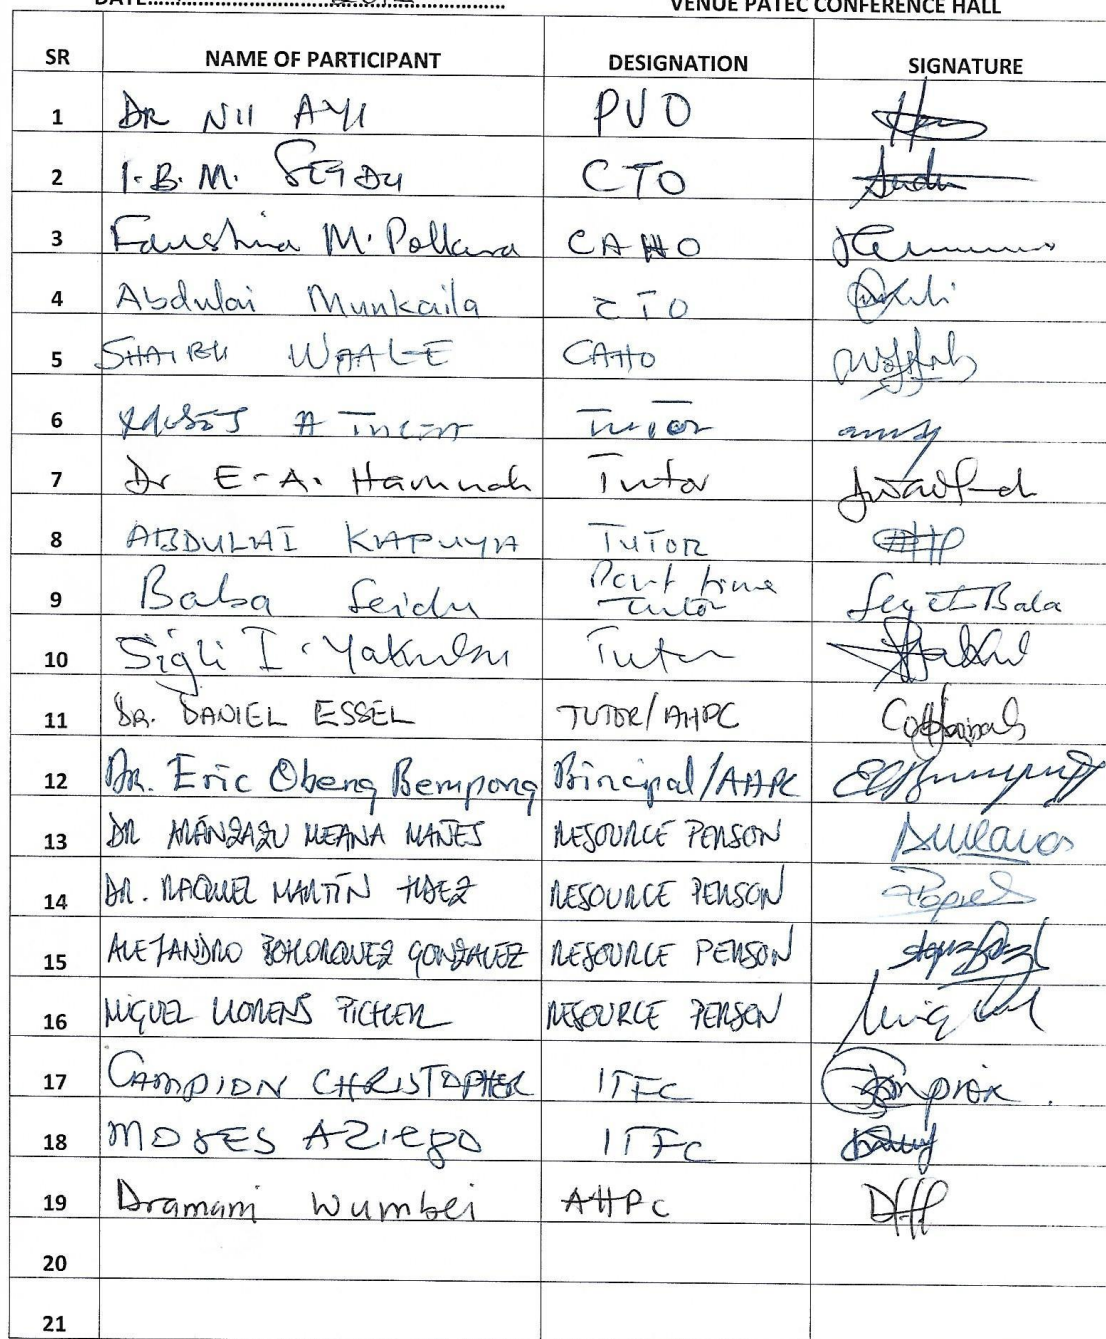 DATE
VENUE PATEC CONFERENCE HALL
SR NAME OF PARTICIPANT DESIGNATION SIGNATURE
1 DR NII AYI PVO
2 I.B.M. SEIDU CTO
3 Faustina M. Pollara CAHO
4 Abdulai Munkaila CTO
5 SHAIBU WAALE CAHO
6 Tutor
7 Dr E-A. Hannah Tutor
8 ABDULAI KAPUYA TUTOR
9 Baba Seidu Part time Tutor
10 Sigli I. Yakubu Tutor
11 DR. DANIEL ESSEL TUTOR/AHPC
12 Dr. Eric Obeng Bempong Principal/AHPC
13 DR ARÁNZAZU MEANA MAÑES RESOURCE PERSON
14 DR. RAQUEL MARTÍN RESOURCE PERSON
15 ALEJANDRO BOHORQUEZ GONZALEZ RESOURCE PERSON
16 MIGUEL LLORENS PICHLER RESOURCE PERSON
17 CAMPION CHRISTOPHER ITFC Campion
18 MOSES AZIEBO ITFC
19 Dramani Wumbei AHPC
20
21